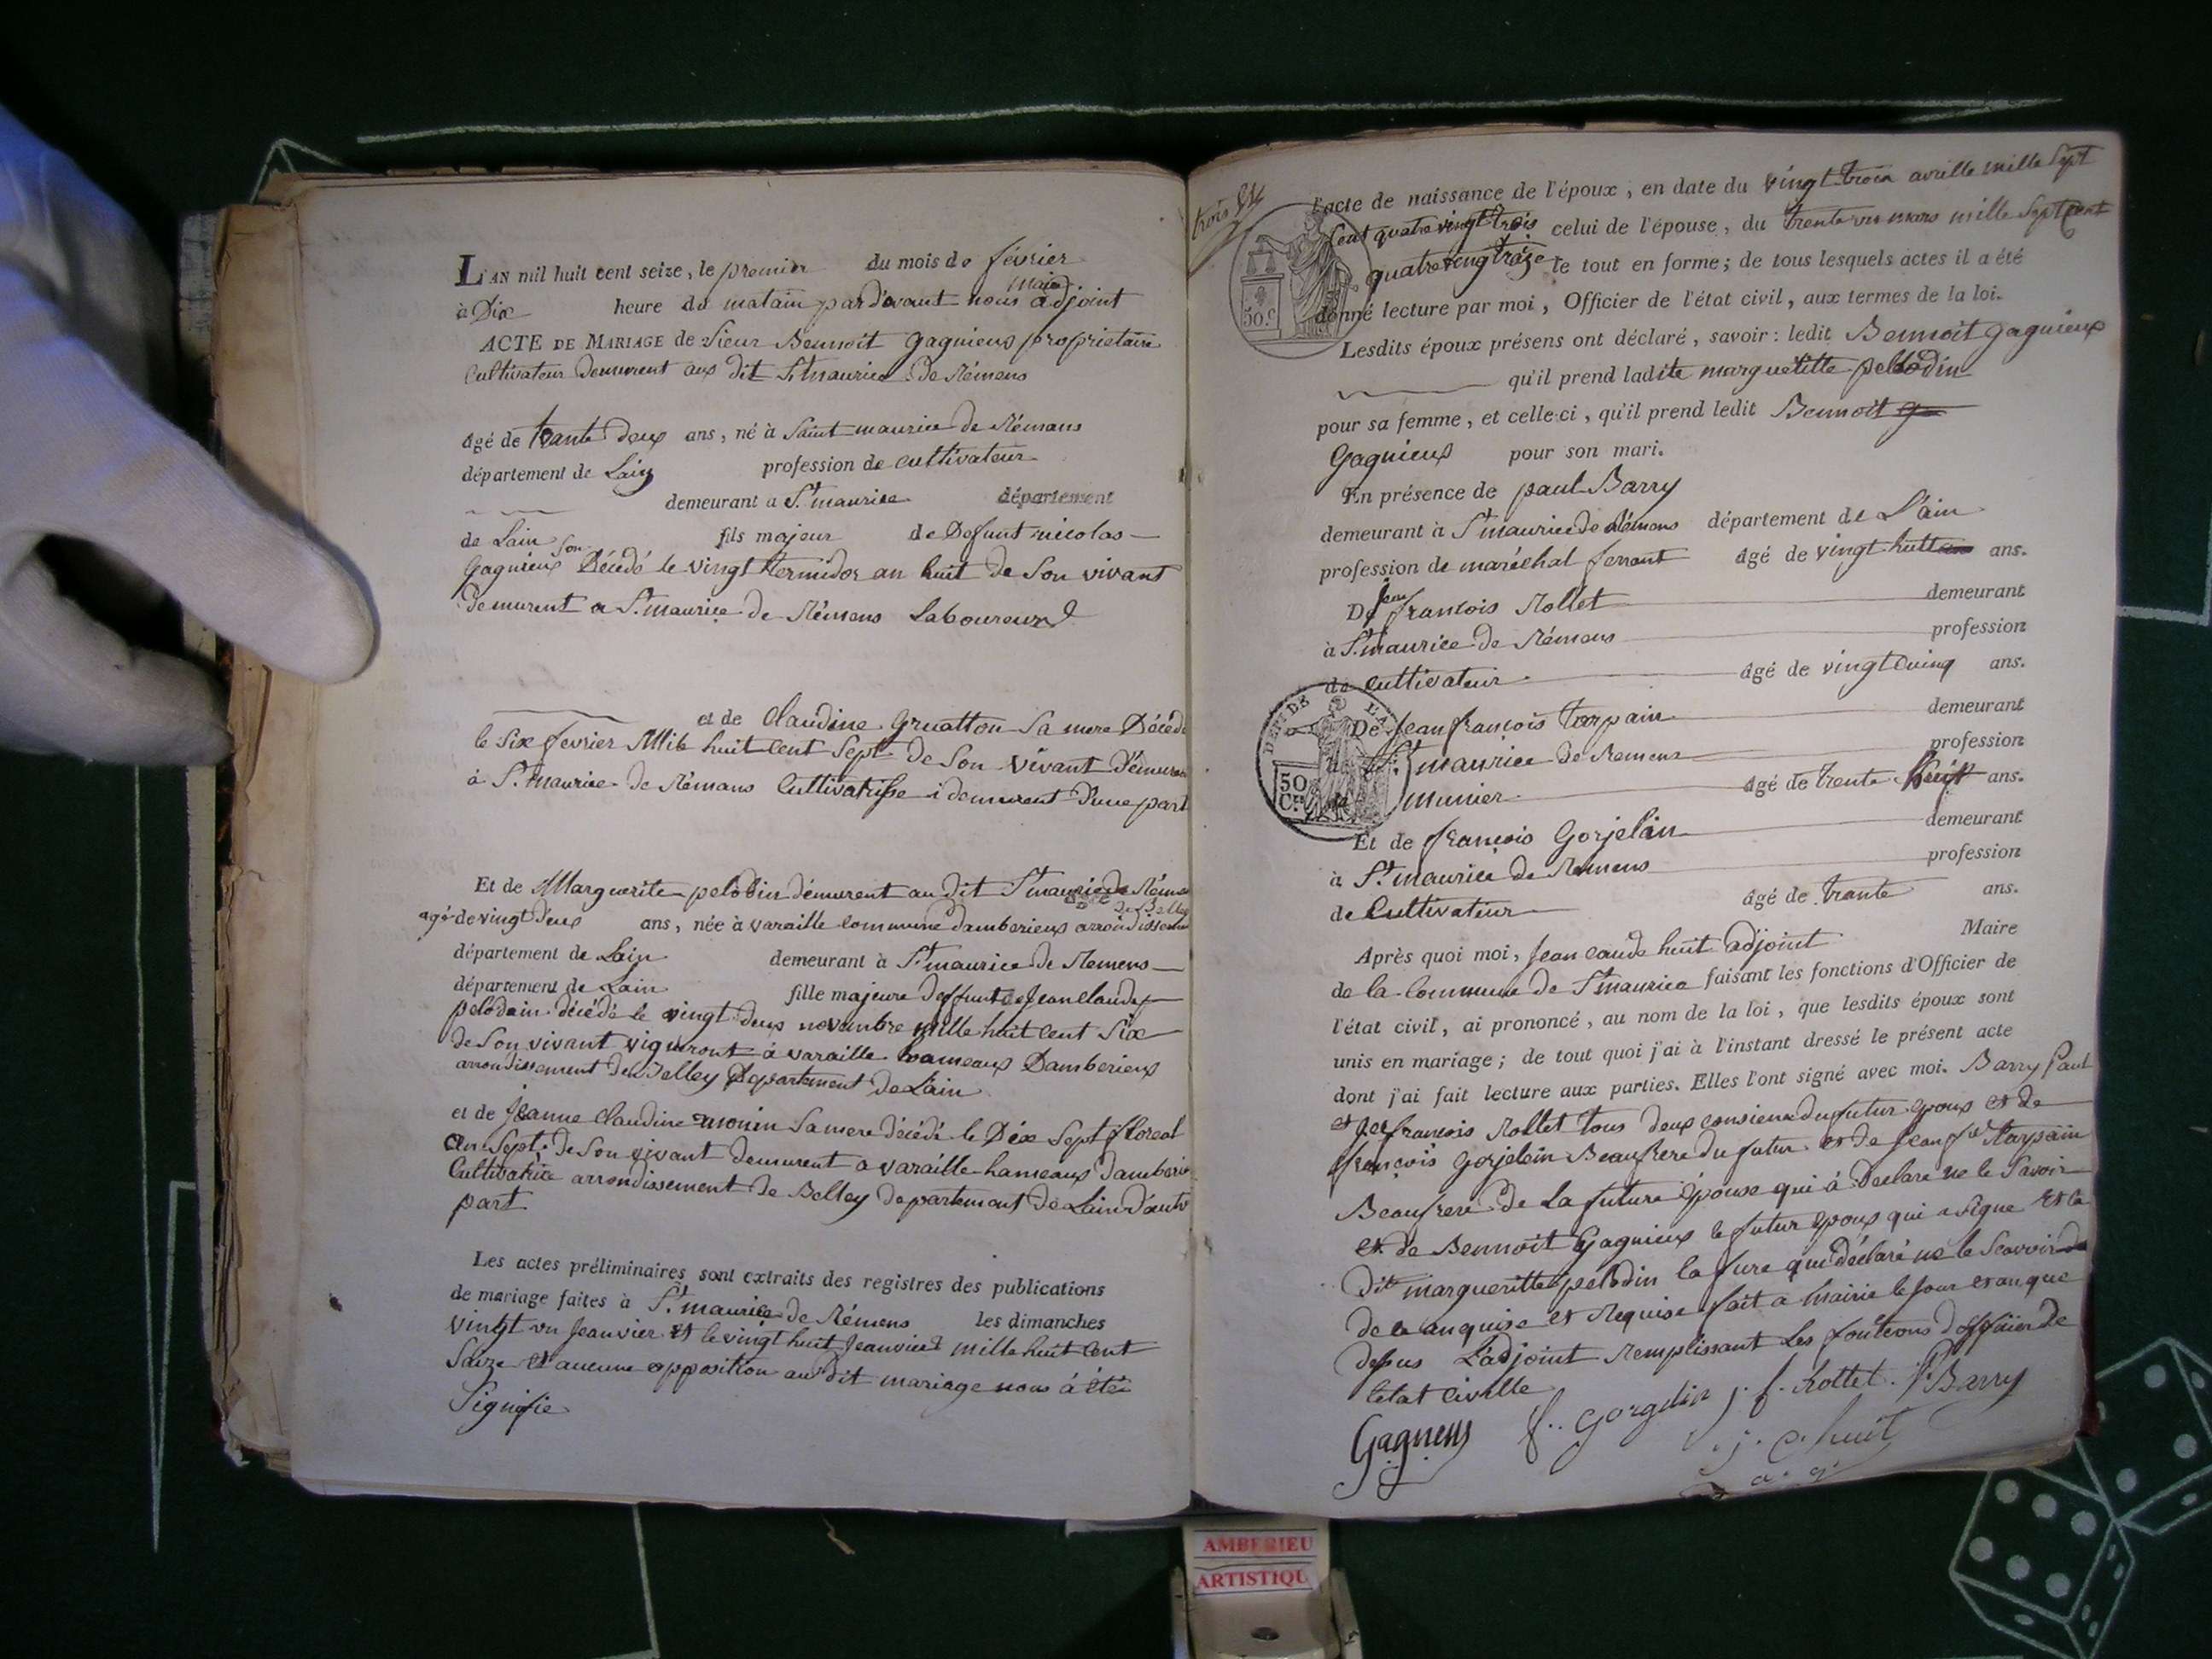 L'AN mil huit cent seize, le premier du mois de février
à Dix heure du matain pardevant nous maire adjoint
ACTE DE MARIAGE de sieur Bennoit Gagnieux proprietaire
Cultivateur Demeurent aux dit St. maurice De Rémens
agé de trante deux ans, né à Saint maurice de Rémans
département de Lain profession de cultivateur
demeurant a St. maurice département
de Lain fils majeur de Defunt nicolas
Gagnieux son Décédé le vingt termidor an huit de Son vivant
demeurent a St. maurice de Rémens Laboureur
et de Claudine Gruatton Sa mere Décédé
le Six fevrier Mile huit Cent Sept de Son vivant Démuran
à St. Maurice de Rémans Cultivatrisse i demeurent D'une part
Et de Marguerite pelodin démurent au dit St maurice de Réme
de Belley
agé de vingt deux ans, née à varaille commune damberieux arrondissemen
département de Lain demeurant à St. maurice de Remens
département de Lain fille majeure deffunt de Jean claude
pelodain décédé le vingt deux novembre mille huit Cent Six
de Son vivant vigneront à varaille hameaux Damberieux
arrondissement de Belley Departement de Lain
et de Jeanne Claudine monin Sa mere décédé le Dix Sept floreal
an Sept de Son vivant demeurent a varaille hameaux damberie
Cultivatrice arrondissement de Belley departement de Lain d'autr
part
Les actes préliminaires sont extraits des registres des publications
de mariage faites à St. maurice de Rémens les dimanches
vingt un Jeanvier et le vingt huit Jeanvier mille huit Cent
Saize et aucune opposition audit mariage nous à été
Signifie
trois
l'acte de naissance de l'époux, en date du vingt trois avrille mille Sept
Cent quatre vingt trois celui de l'épouse, du trente un mars mille Sept Cent
quatre ving traize le tout en forme; de tous lesquels actes il a été
donné lecture par moi, Officier de l'état civil, aux termes de la loi.
50.c
Lesdits époux présens ont déclaré, savoir: ledit Bennoit gagnieux
qu'il prend ladite marguetitte pellodin
pour sa femme, et celle-ci, qu'il prend ledit Bennoit
Gagnieux pour son mari.
En présence de paul Barry
demeurant à St maurice de Rémens département de L'ain
profession de maréchal ferrant agé de vingt huit ans.
De Jean francois Rollet demeurant
à St. maurice de Rémens profession
de cultivateur agé de vingt Cuinq ans.
De Jean francois tarpain demeurant
à St. maurice de Remens profession
50 Ces
de munier agé de trente huit ans.
Et de francois Gorjelin demeurant
à St. maurice de Remens profession
de Cultivateur agé de trante ans.
Après quoi moi, Jean caude huit adjoint Maire
de la Commune de St maurice faisant les fonctions d'Officier de
l'état civil, ai prononcé, au nom de la loi, que lesdits époux sont
unis en mariage; de tout quoi j'ai à l'instant dressé le présent acte
dont j'ai fait lecture aux parties. Elles l'ont signé avec moi. Barry Paul
et francois Rollet tous deux consiens du futur epoux et de
françois Gorjelein Beaufrere du futur et de Jean fr. Tarpain
Beaufrere de La future épouse qui à Declaré ne le Savoir
et de Bennoit Gagnieux le futur epoux qui a signe et la
Dite margueritte pelodin la fure qui déclaré ne le Scavoir
de ce anquise et Requise fait a Mairie le Jour et an que
desus L'adjoint Remplissant Les fontions d'offisier de
letat civille
Gagneux f.. gorgelin j. f. rollet. P Barry
j. c. huit
AMBERIEU
ARTISTIQU